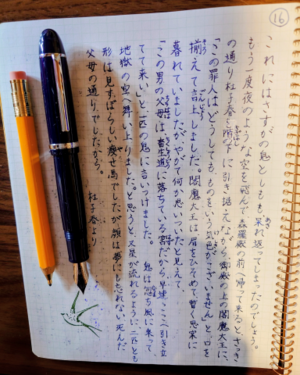 16
これにはさすがの鬼どもも、呆れ返ってしまったのでしょう。
もう一度夜のような空を飛んで、森羅殿の前へ帰って来ると、さっき
の通り杜子春を階の下に引き据えながら、御殿の上の閻魔大王に、
「この罪人はどうしても、ものをいう気色がございません」と、口を
揃えて言上しました。閻魔大王は眉をひそめて、暫く思案に
暮れていましたが、やがて何か思いついたと見えて
「この男の父母は、畜生道に落ちている筈だから、早速ここへ引き立
てて来い」と、一匹の鬼に言いつけました。 鬼は忽ち風に乗って
地獄の空へ舞い上りました。と思うと、又星が流れるように、二匹とも
形は見すぼらしい痩せ馬でしたが、顔は夢にも忘れない、死んだ
父母の通りでしたから。 杜子春より